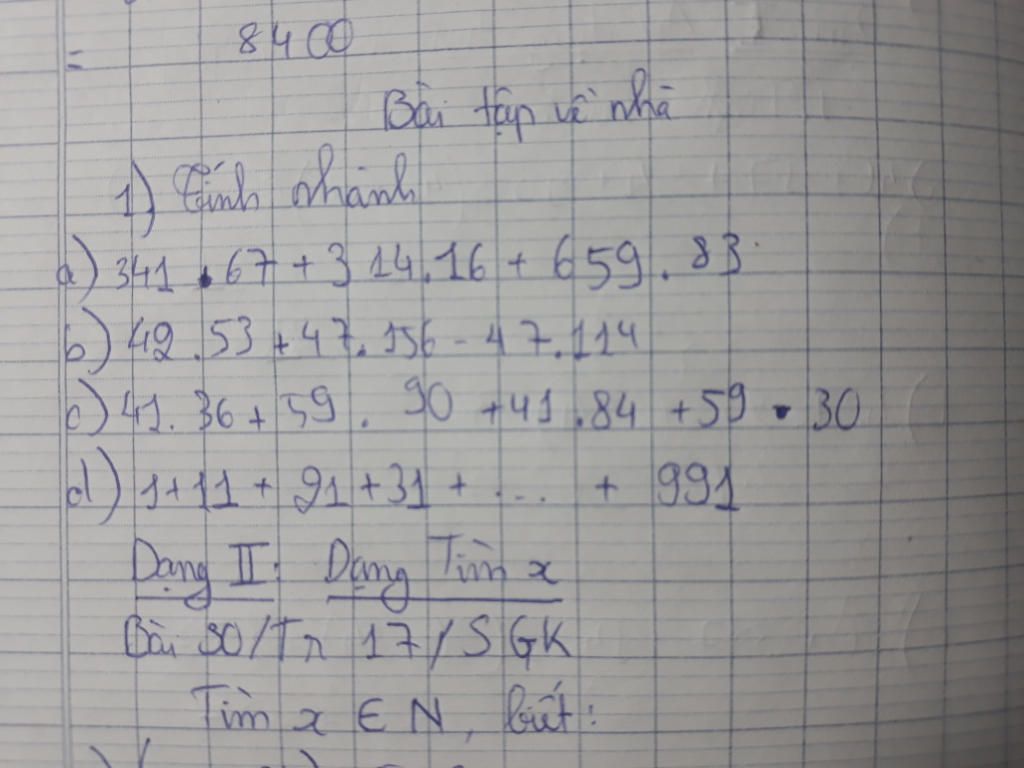 = 8400
Bài tập về nhà
1) Tính nhanh
a) 341 . 67 + 314.16 + 659 . 83
b) 42 . 53 + 47 . 156 - 47 . 114
c) 41 . 36 + 59 . 90 + 41 . 84 + 59 . 30
d) 1 + 11 + 21 + 31 + .... + 991
Dạng II: Dạng Tìm x
Bài 30/Tr 17/SGK
Tìm x ∈ N, biết: